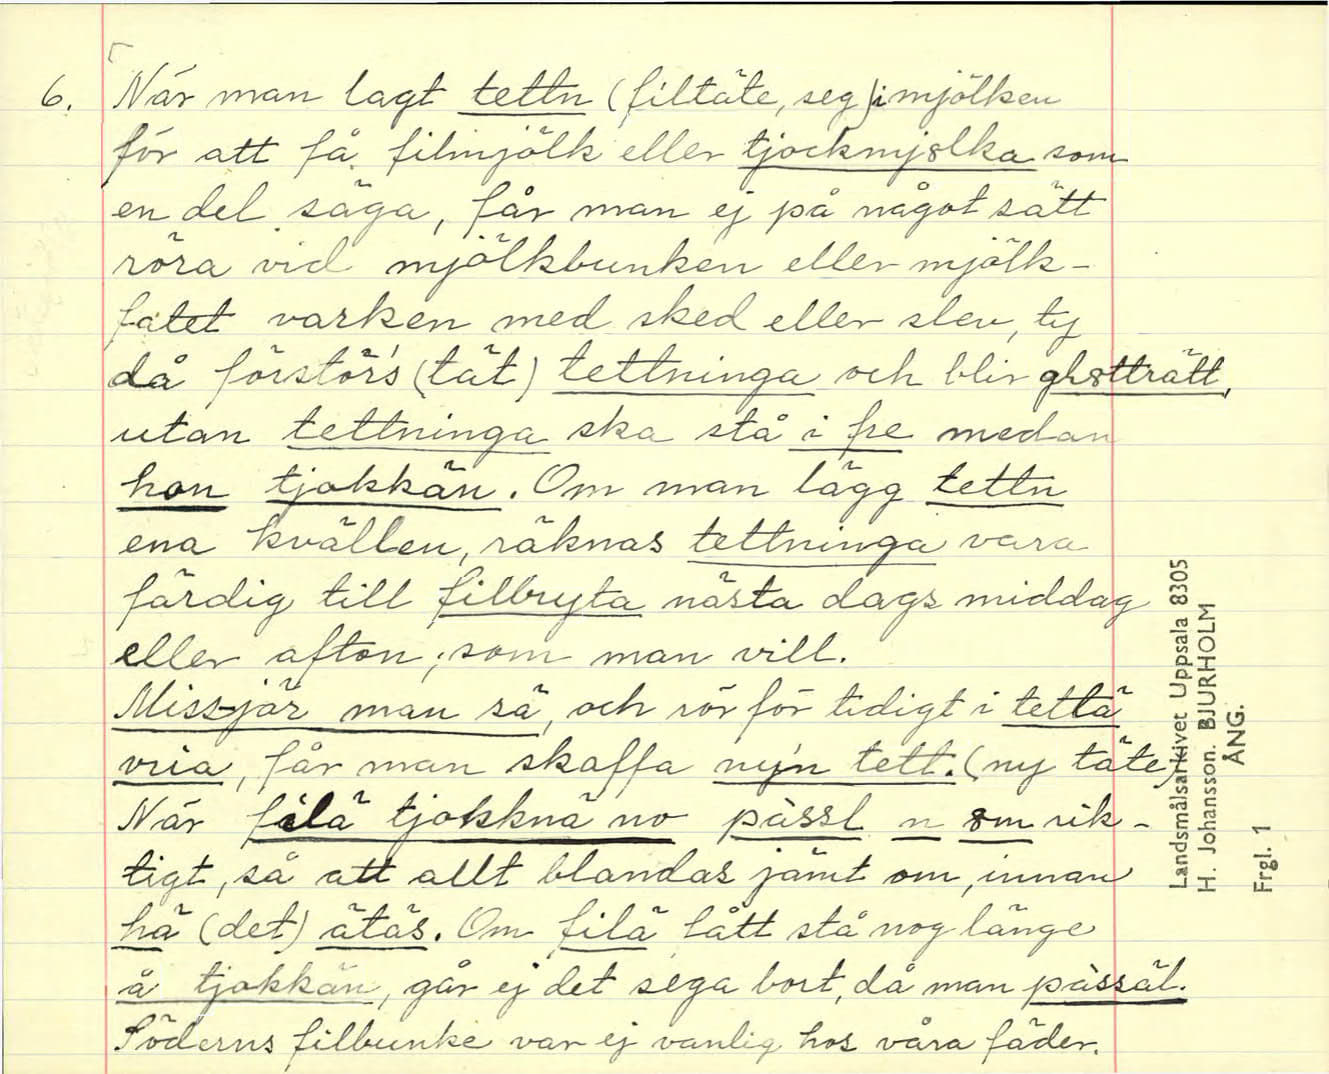 6. När man lagt tettn (filtäte, seg) i mjölken
för att få filmjölk eller tjockmjölka som
en del säga, får man ej på något sätt
röra vid mjölkbunken eller mjölk-
fatet varken med sked eller slev, ty
då förstörs (tät) tettninga och blir ghøtträtt,
utan tettninga ska stå i fre medan
hon tjokkän. Om man lägg tettn
ena kvällen, räknas tettninga vara
färdig till filbryta nästa dags middag
eller afton, som man vill.
Miss-jär man sä, och rör för tidigt i tettä
vria, får man skaffa nyn tett. (ny täte)
När filä tjokknä no pässl n øm rik-
tigt, så att allt blandas jämt om, innan
hä (det) ätäs. Om filä fått stå nog länge
å tjokkän, går ej det sega bort, då man pässäl.
Söderns filbunke var ej vanlig hos våra fäder.
Landsmålsarkivet Uppsala 8305
H. Johansson. BJURHOLM
ÅNG.
Frgl. 1